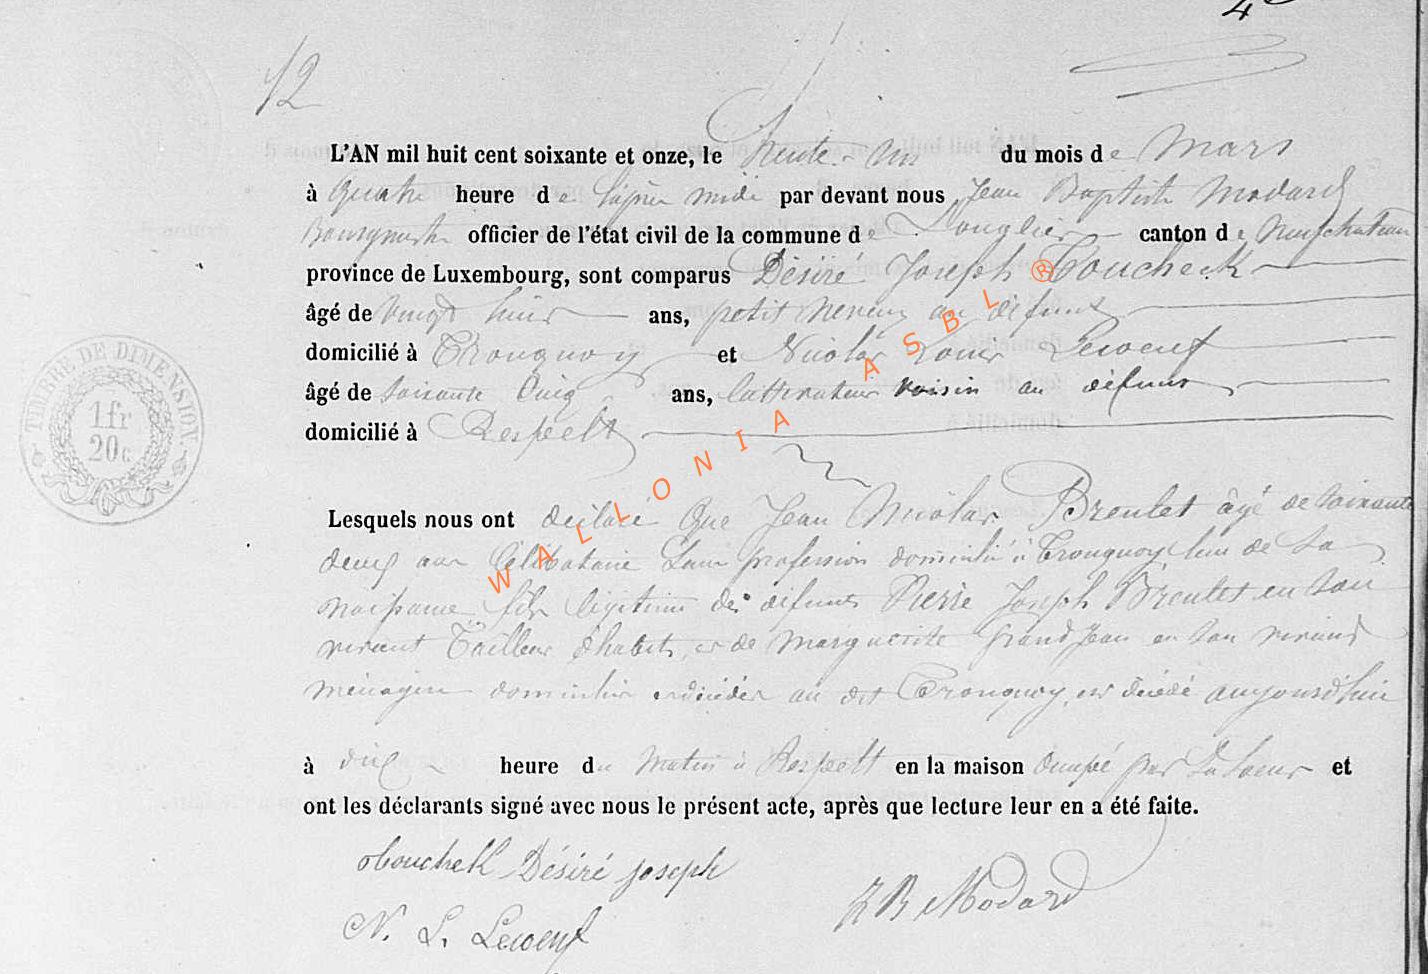 12
L'AN mil huit cent soixante et onze, le Trente-un du mois de Mars
à Quatre heure de l'après midi par devant nous Jean Baptiste Modard
Bourgmestre officier de l'état civil de la commune de Longlier canton de Neufchateau
province de Luxembourg, sont comparus Désiré Joseph Boucheck
âgé de vingt huit ans, petit neveu au défunt
domicilié à Tronquoy et Nicolas Louis Lecoeuf
âgé de Soixante Cinq ans, Cultivateur voisin au défunt
domicilié à Respelt
Lesquels nous ont déclaré Que Jean Nicolas Breulet âgé de soixante
deux ans Célibataire Sans profession domicilié à Tronquoy lieu de Sa
naissance fils légitime des défunts Pierre Joseph Breulet en son
vivant Tailleur d'habits, et de Marguerite Grand Jean en son vivant
ménagère domiciliés et décédés au dit Tronquoy, est décédé aujourd'hui
à dix heure du Matin à Respelt en la maison Occupé par Sa Soeur et
ont les déclarants signé avec nous le présent acte, après que lecture leur en a été faite.
Désiré joseph
N. L. Lecoeuf
JB Modard
TIMBRE DE DIMENSION.
1fr
20c
WALLONIA ASBL ®